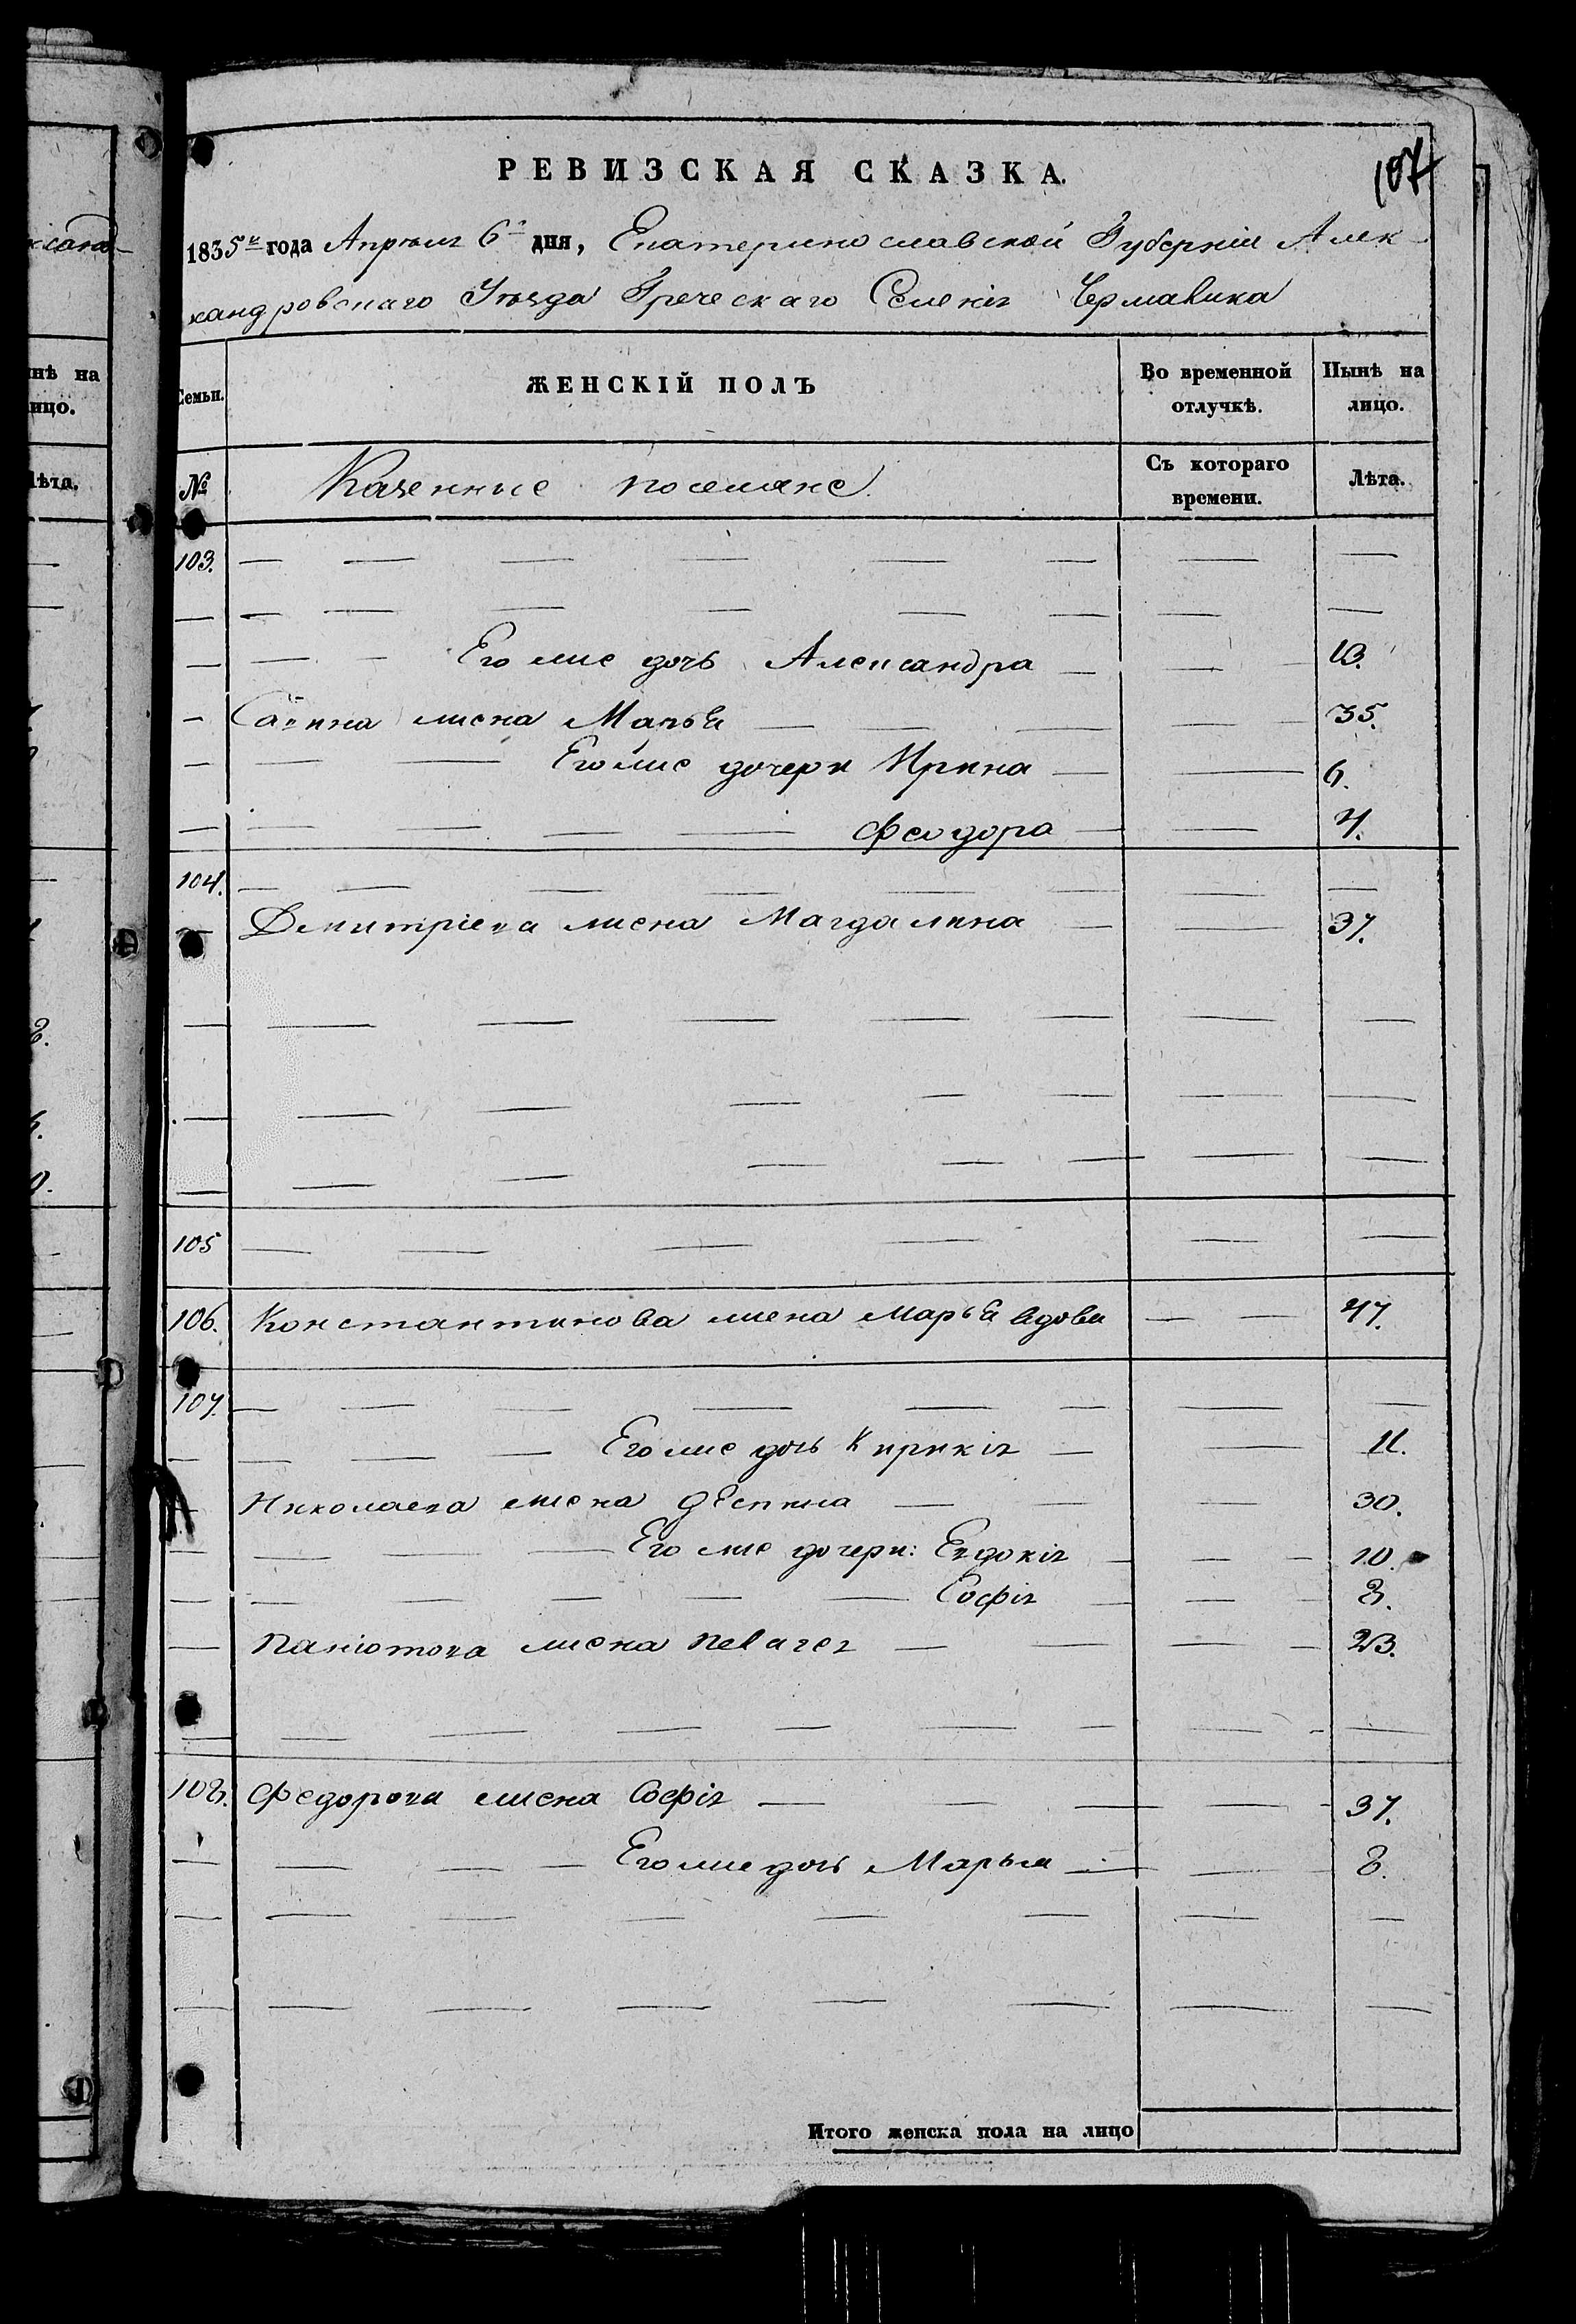 ксанд-
РЕВИЗСКАЯ СКАЗКА.
107
1835го года Апреля 6го дня, Екатеринославской Губерніи Алек-
сандровскаго Уезда Греческаго Селенія Чермалика
ынѣ на
лицо.
Лѣта.
Семьи.
ЖЕНСКІЙ ПОЛЪ
Во временной
отлучкѣ.
Нынѣ на
лицо.
№
Казенные поселяне.
Съ котораго
времени.
Лѣта.
103.
Его же дочь Александра 13.
жена Марья 35.
Его же дочери Ирина 6.
Феодора 4.
104.
Дмитріева жена Магдалина 37.
105
106. Константинова жена Марья вдова 47.
107.
Его же дочь Кирикія 11.
Николаева жена Деспина 30.
Его же дочери: Евдокія 10.
Софія 8.
Паніотова жена Пелагея 23.
108. Федорова жена Софія 37.
Его же дочь Марья 8.
Итого женска пола на лицо